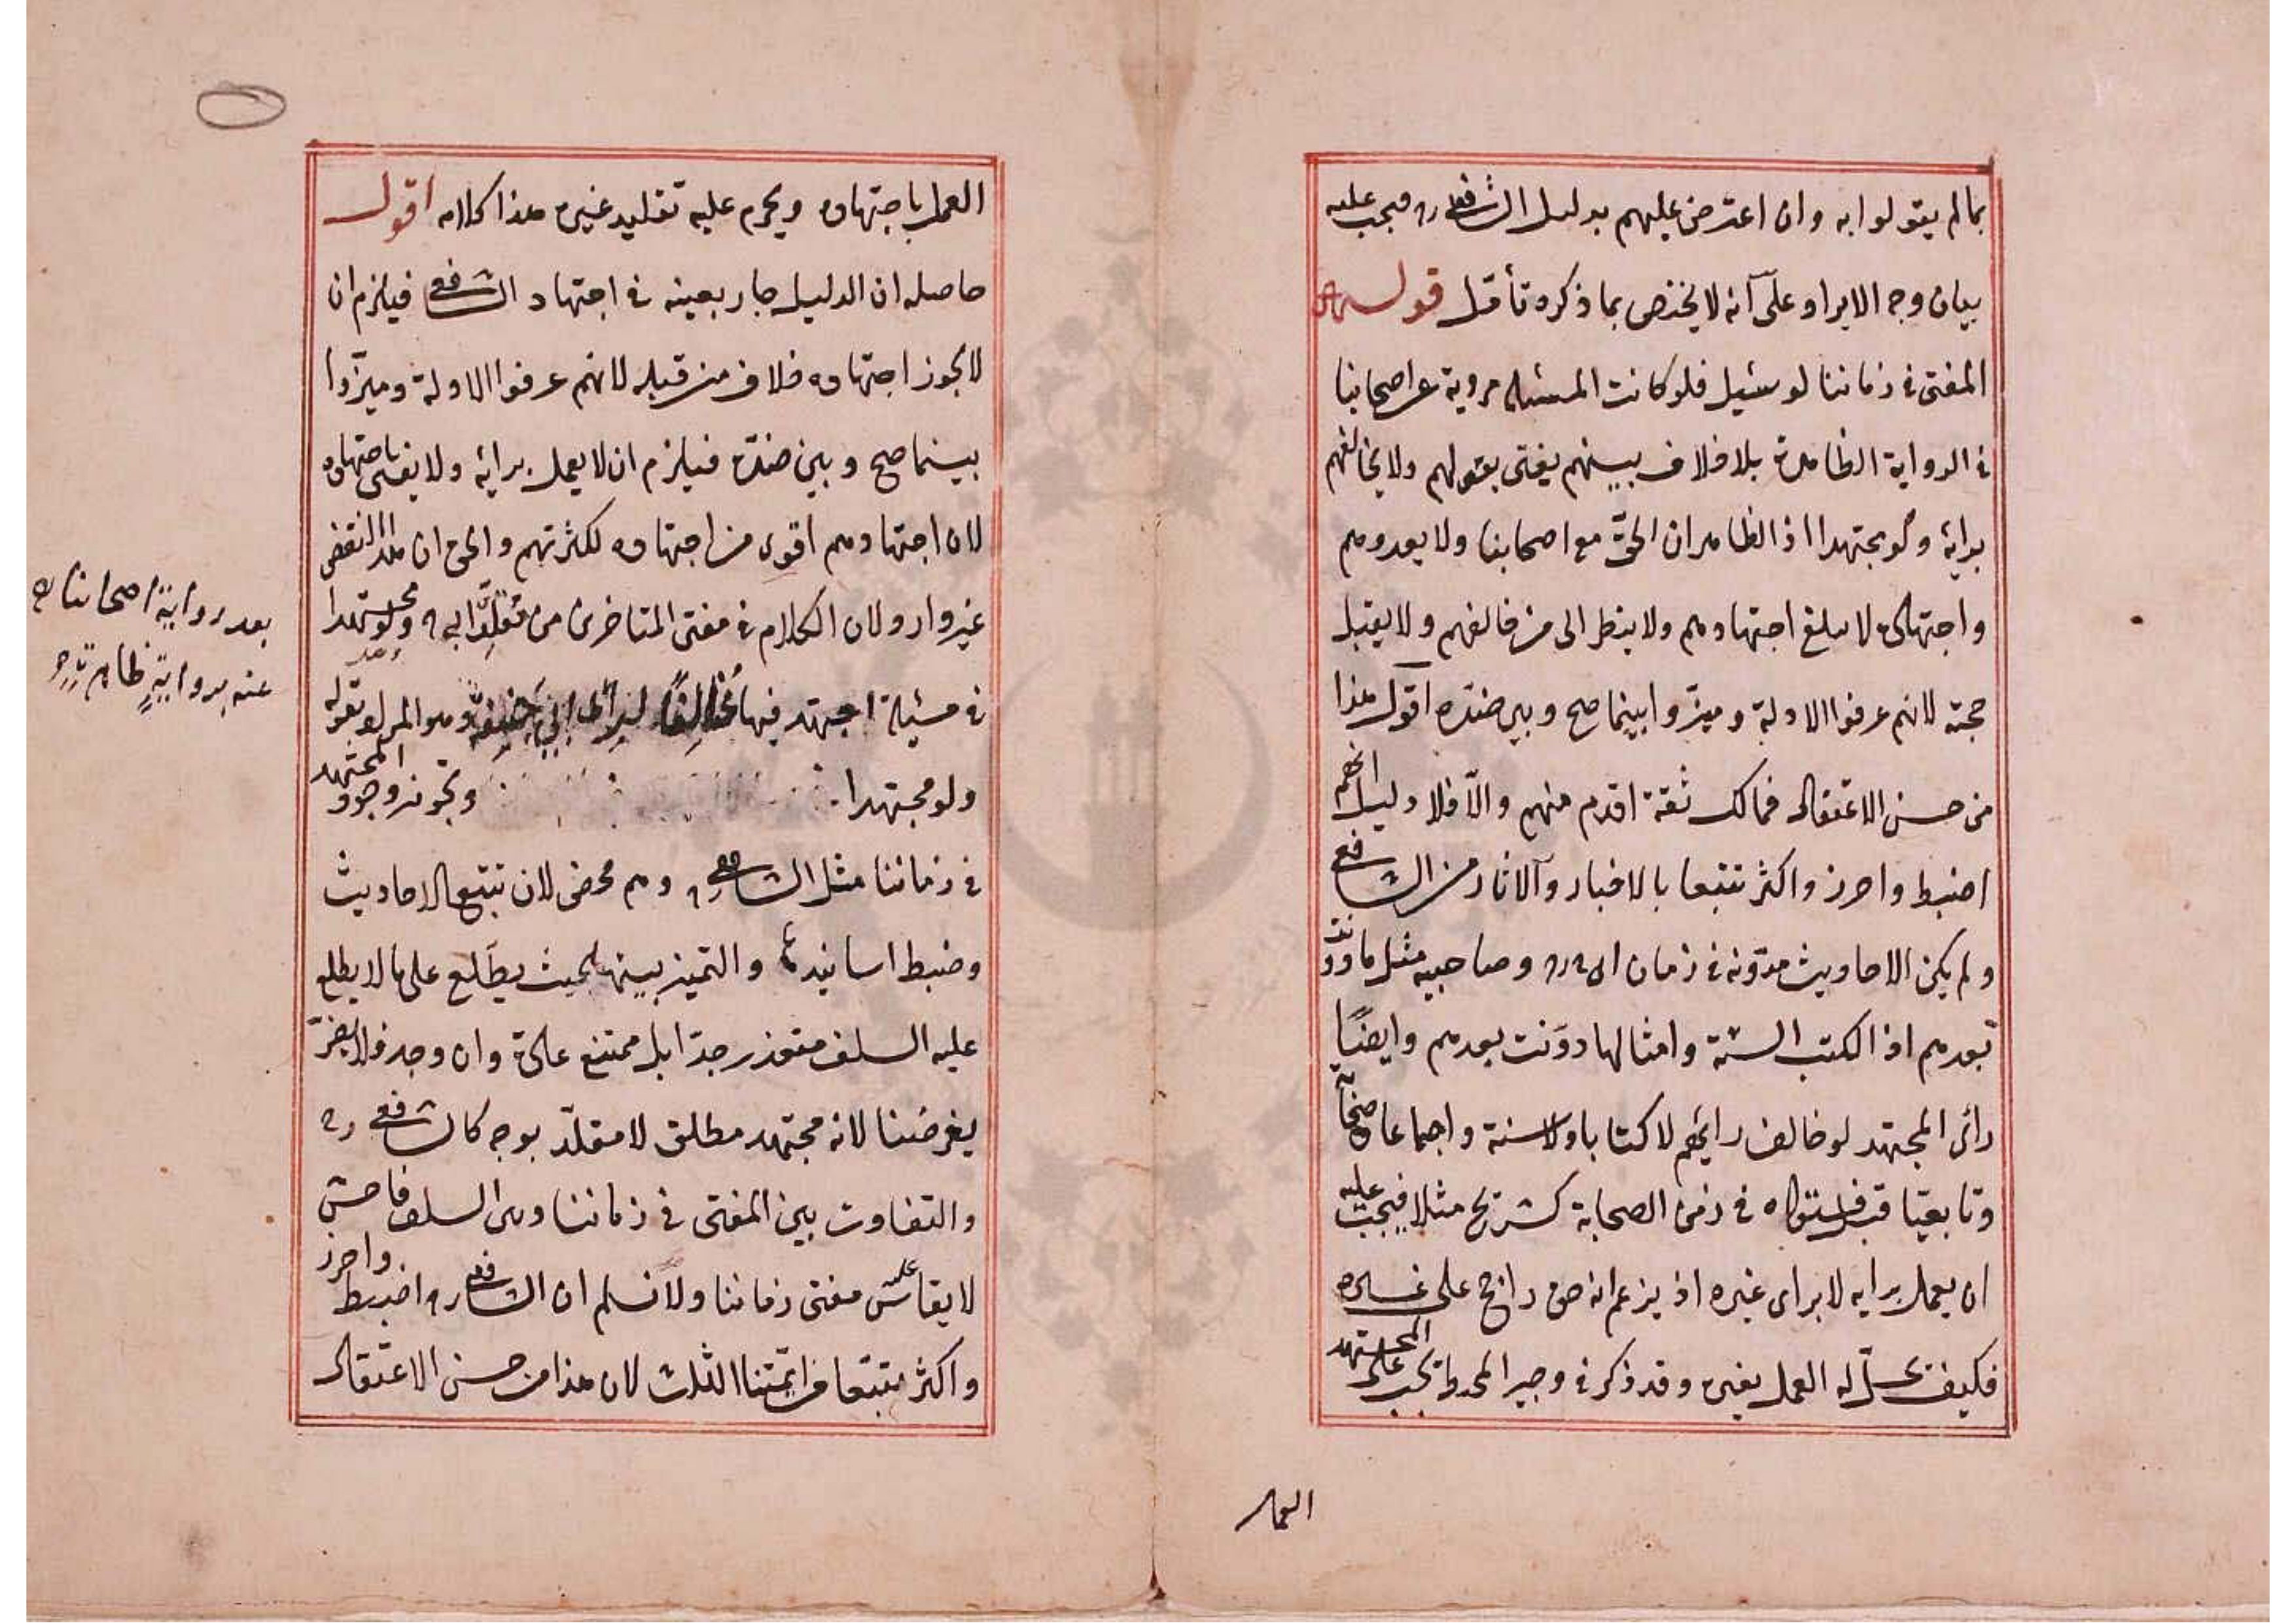 بما لم يقولوا به وان اعترض عليهم بدليل الشافعي ره فيجب عليه
بيان وجه الايراد على آنه لا يختص بما ذكره تأمّل قوله
المفتى في زماننا لو سئيل فلو كانت المسئله مروية عن اصحابنا
في الرواية الظاهرة بلا خلاف بينهم يفتى بقولهم ولا يخالفهم
برايه ولو مجتهدا اذ الظاهر ان الحقّ مع اصحابنا ولا يعدوهم
واجتهاده لا يبلغ اجتهادهم ولا ينظر الى من خالفهم ولا يقبل
حجته لانهم عرفوا الادلة وميزّوا بينما صح وبين ضدّه اقول هذا
من حسن الاعتقاد فمالك ثقة اقدم منهم والّا فلا دليل انهم
اضبط واحرز واكثر تتبعا بالاخبار والآثار من الشافعي
ولم يكن الاحاديث مدوّنه في زمان ره وصاحبيه مثل ما دونت
بعدهم اذ الكتب الستة وامثالها دوّنت بعدهم وايضًا
رائ المجتهد لو خالف رايهم لا كتابا ولا سنة واجماعا
وتابعيا في زمن الصحابة كشريح مثلا فيجب عليه
ان يعمل برايه لا براى غيره اذ يزعم انه حق راجح على غيره
فكيف يحلّ له العمل بغيره وقد ذكر في وجيز المحيط يجب على المجتهد
العمل
العمل باجتهاده ويحرم عليه تقليد غيره هذا كلامه اقول
حاصله ان الدليل جار بعينه في اجتهاد الشافعي فيلزم ان
لا يجوز اجتهاده خلاف من قبله لانهم عرفوا الادلة وميزّوا
بينما صح وبين ضدّه فيلزم ان لا يعمل برائه ولا يفتى باجتهاده
لان اجتهادهم اقوى من اجتهاده لكثرتهم والحق ان هذا النقض
غير وارد لان الكلام في مفتى المتاخرين من مقلّد ابي ولو مجتهدا
في مسئيلة اجتهد فيها مُخالِفًا لراى ابي حنيفة وهو المراد بقوله
ولو مجتهدا ويجوز وجود المجتهد
في زماننا مثل الشافعي ره وهم محض لان تتبع الاحاديث
وضبط اسانيدها والتميز بينها بحيث يطّلع على ما لا يطلع
عليه السلف متعذر جدّا بل ممتنع عادة وان وجد فلا يضرّ
بغرضنا لانه مجتهد مطلق لا مقلّد بوجه كالشافعي ره
والتفاوت بين المفتى في زماننا وبين السلف فاحش
لا يقاس عليه مفتى زماننا ولا نسلم ان الشافعي ره اضبط واحرز
واكثر تتبّعا من ائمّتنا الثلث لان هذا من حسن الاعتقاد
بعد رواية اصحابنا
عنه برواية ظاهرة